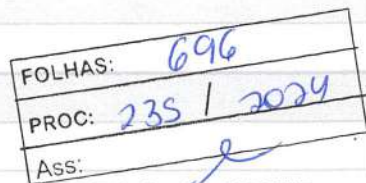 FOLHAS: 696
PROC: 235 / 2024
Ass: